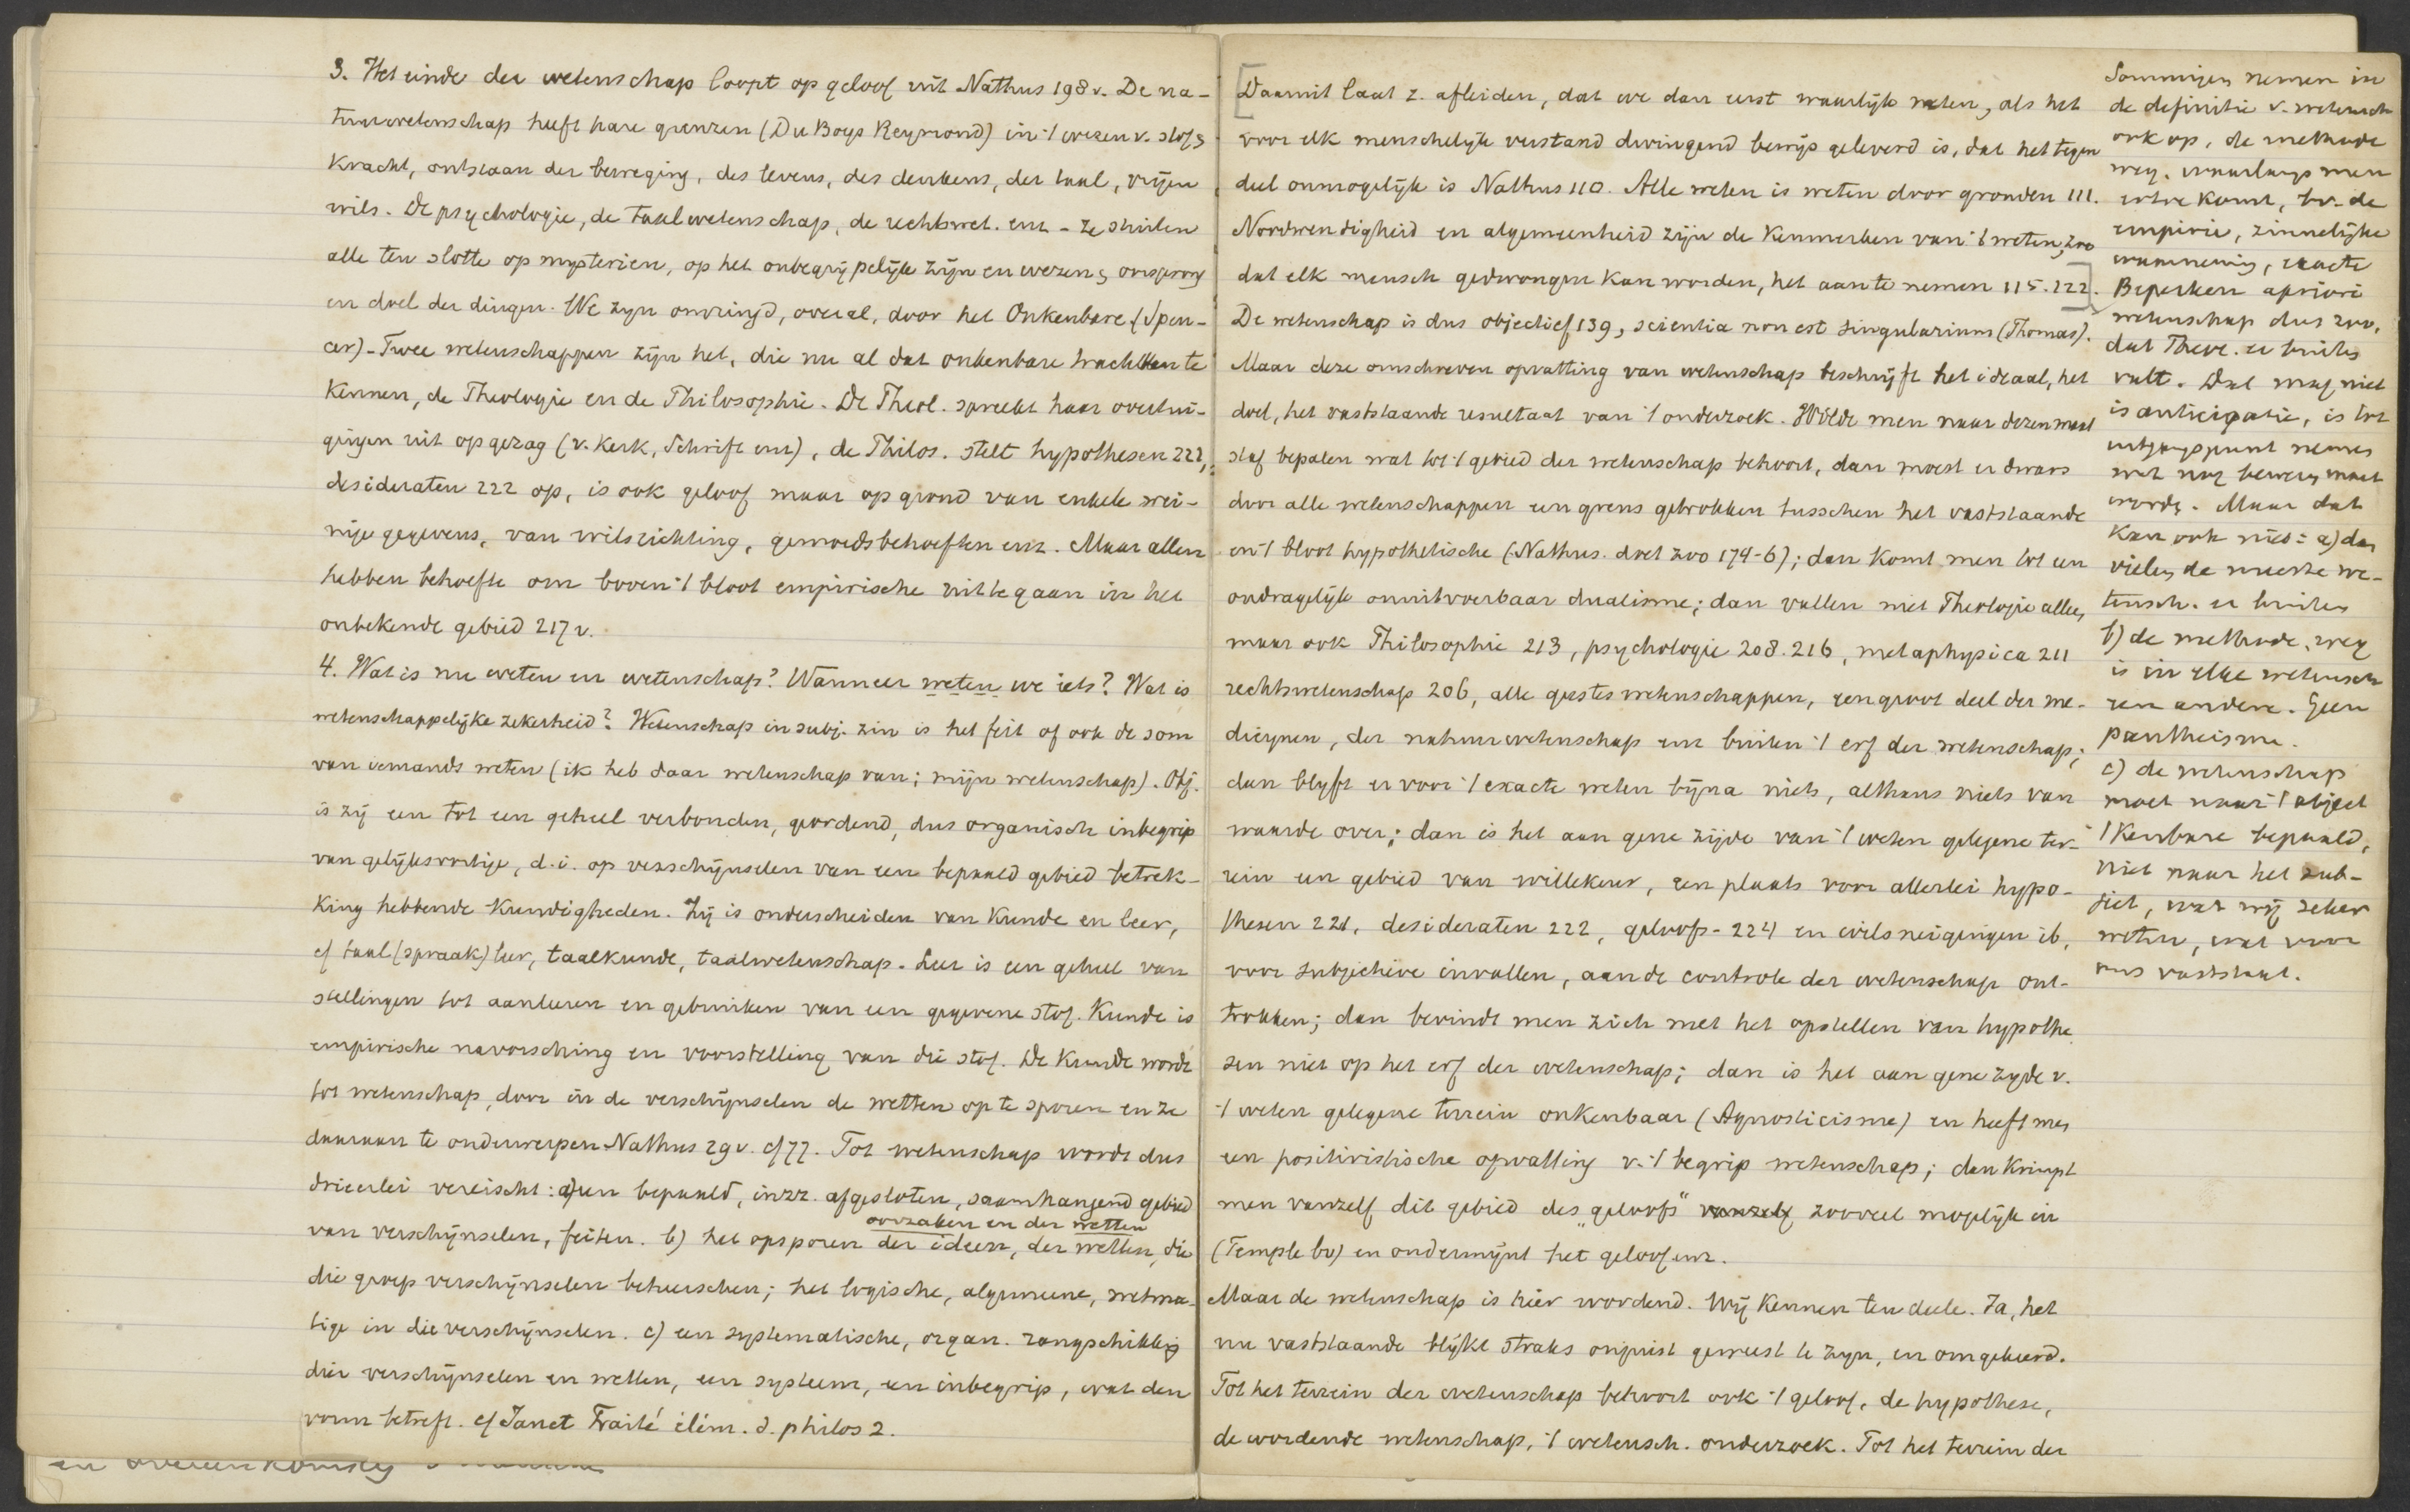 3. Het einde der wetenschap loopt op geloof uit Nathus 198 v. De na-
tuurwetenschap heeft hare grenzen (Du Boys Reymond) in 't wezen v. stof,
kracht, ontstaan der beweging, des levens, des denkens, der taal, vrijen
wils. De psychologie, de taalwetenschap, de rechtswet. enz - ze stuiten
alle ten slotte op mysterien, op het onbegrijpelijke zijn en wezen, oorsprong
en doel der dingen. We zijn omringd, overal, door het Onkenbare (Spen-
cer) - Twee wetenschappen zijn het, die nu al dat onkenbare trachtten te
kennen, de Theologie en de Philosophie. De Theol. spreekt haar overtui-
gingen uit op gezag (v. Kerk, Schrift enz), de Philos. stelt hypothesen 221,
desideraten 222 op, is ook geloof maar op grond van enkele wei-
nige gegevens, van wilsrichting, gemoedsbehoeften enz. Maar allen
hebben behoefte om boven 't bloot empirische uit te gaan in het
onbekende gebied 217 v.
4. Wat is nu weten en wetenschap? Wanneer weten we iets? Wat is
wetenschappelijke zekerheid? Wetenschap in subj. zin is het feit of ook de som
van iemands weten (ik heb daar wetenschap van; mijn wetenschap). Obj.
is zij een tot een geheel verbonden, geordend, dus organisch inbegrip
van gelijksoortige, d.i. op verschijnselen van een bepaald gebied betrek-
king hebbende kundigheden. Zij is onderscheiden van kunde en leer,
cf taal (spraak) leer, taalkunde, taalwetenschap. Leer is een geheel van
stellingen tot aanleeren en gebruiken van een gegevene stof. Kunde is
empirische navorsching en voorstelling van die stof. De Kunde wordt
tot wetenschap, door in de verschijnselen de wetten op te sporen en ze
daaraan te onderwerpen Nathus 29 v. cf 77. Tot wetenschap wordt dus
drieerlei vereischt: a) een bepaald, inzz. afgesloten, saamhangend gebied
oorzaken en der wetten
van verschijnselen, feiten. b) het opsporen der ideen, der wetten, die
die groep verschijnselen beheerschen; het logische, algemeene, wetma-
tige in die verschijnselen. c) een systematische, organ. rangschikking
dier verschijnselen en wetten, een systeem, een inbegrip, wat den
vorm betreft. cf Janet Traité élém. d. philos 2.
[Daaruit laat z. afleiden, dat we dan eerst waarlijk weten, als het
voor elk menschelijk verstand dwingend bewijs geleverd is, dat het tegen
deel onmogelijk is Nathus 110. Alle weten is weten door gronden 111.
Noodwendigheid en algemeenheid zijn de kenmerken van 't weten, zoo
dat elk mensch gedwongen kan worden, het aan te nemen 115. 122].
De wetenschap is dus objectief 139, scientia non est singularium (Thomas).
Maar deze omschreven opvatting van wetenschap beschrijft het ideaal, het
doel, het vaststaande resultaat van 't onderzoek. Wilde men naar dezen maat
staf bepalen wat tot 't gebied der wetenschap behoort, dan moest er dwars
door alle wetenschappen een grens getrokken tusschen het vaststaande
en 't bloot hypothetische (Nathus. doet zoo 174-6); dan komt men tot een
ondragelijk onuitvoerbaar dualisme; dan vallen niet Theologie alleen,
maar ook Philosophie 213, psychologie 208. 216, metaphysica 211
rechtswetenschap 206, alle geesteswetenschappen, een groot deel der me-
dicynen, der natuurwetenschap enz buiten 't erf der wetenschap;
dan blijft er voor 't exacte weten bijna niets, althans niets van
waarde over; dan is het aan gene zijde van 't weten gelegene ter-
rein een gebied van willekeur, een plaats voor allerlei hypo-
thesen 221, desideraten 222, geloofs- 224 en wilsneigingen ib,
voor subjectieve invallen, aan de controle der wetenschap ont-
trokken; dan bevindt men zich met het opstellen van hypothe
sen niet op het erf der wetenschap; dan is het aan gene zijde v.
't weten gelegene terrein onkenbaar (Agnosticisme) en heeft men
een positivistische opvatting v. 't begrip wetenschap; dan krimpt
men vanzelf dit gebied des „geloofs" vanzelf zooveel mogelijk in
(Temple bv) en ondermijnt het geloof enz.
Maar de wetenschap is hier wordend. Wij kennen ten deele. Ja, het
nu vaststaande blijkt straks onjuist geweest te zijn, en omgekeerd.
Tot het terrein der wetenschap behoort ook 't geloof, de hypothese,
de wordende wetenschap, 't wetensch. onderzoek. Tot het terrein der
Sommigen nemen in
de definitie v. wetensch
ook op, de methode
weg, waarlangs men
ertoe komt, bv. de
empirie, zinnelijke
waarneming, exacte
Beperken apriori
wetenschap dus zoo,
dat Theol. er buiten
valt. Dat mag niet
is anticipatie, is tot
uitgangspunt nemen
wat nog bewezen moet
worden. Maar dat
kan ook niet: a) dan
vielen de meeste we-
tensch. er buiten
b) de methode, weg
is in elke wetensch
een andere. Geen
pantheisme.
c) de wetenschap
moet naar 't object
't kenbare bepaald,
niet naar het sub-
ject, wat wij zeker
weten, wat voor
ons vaststaat.